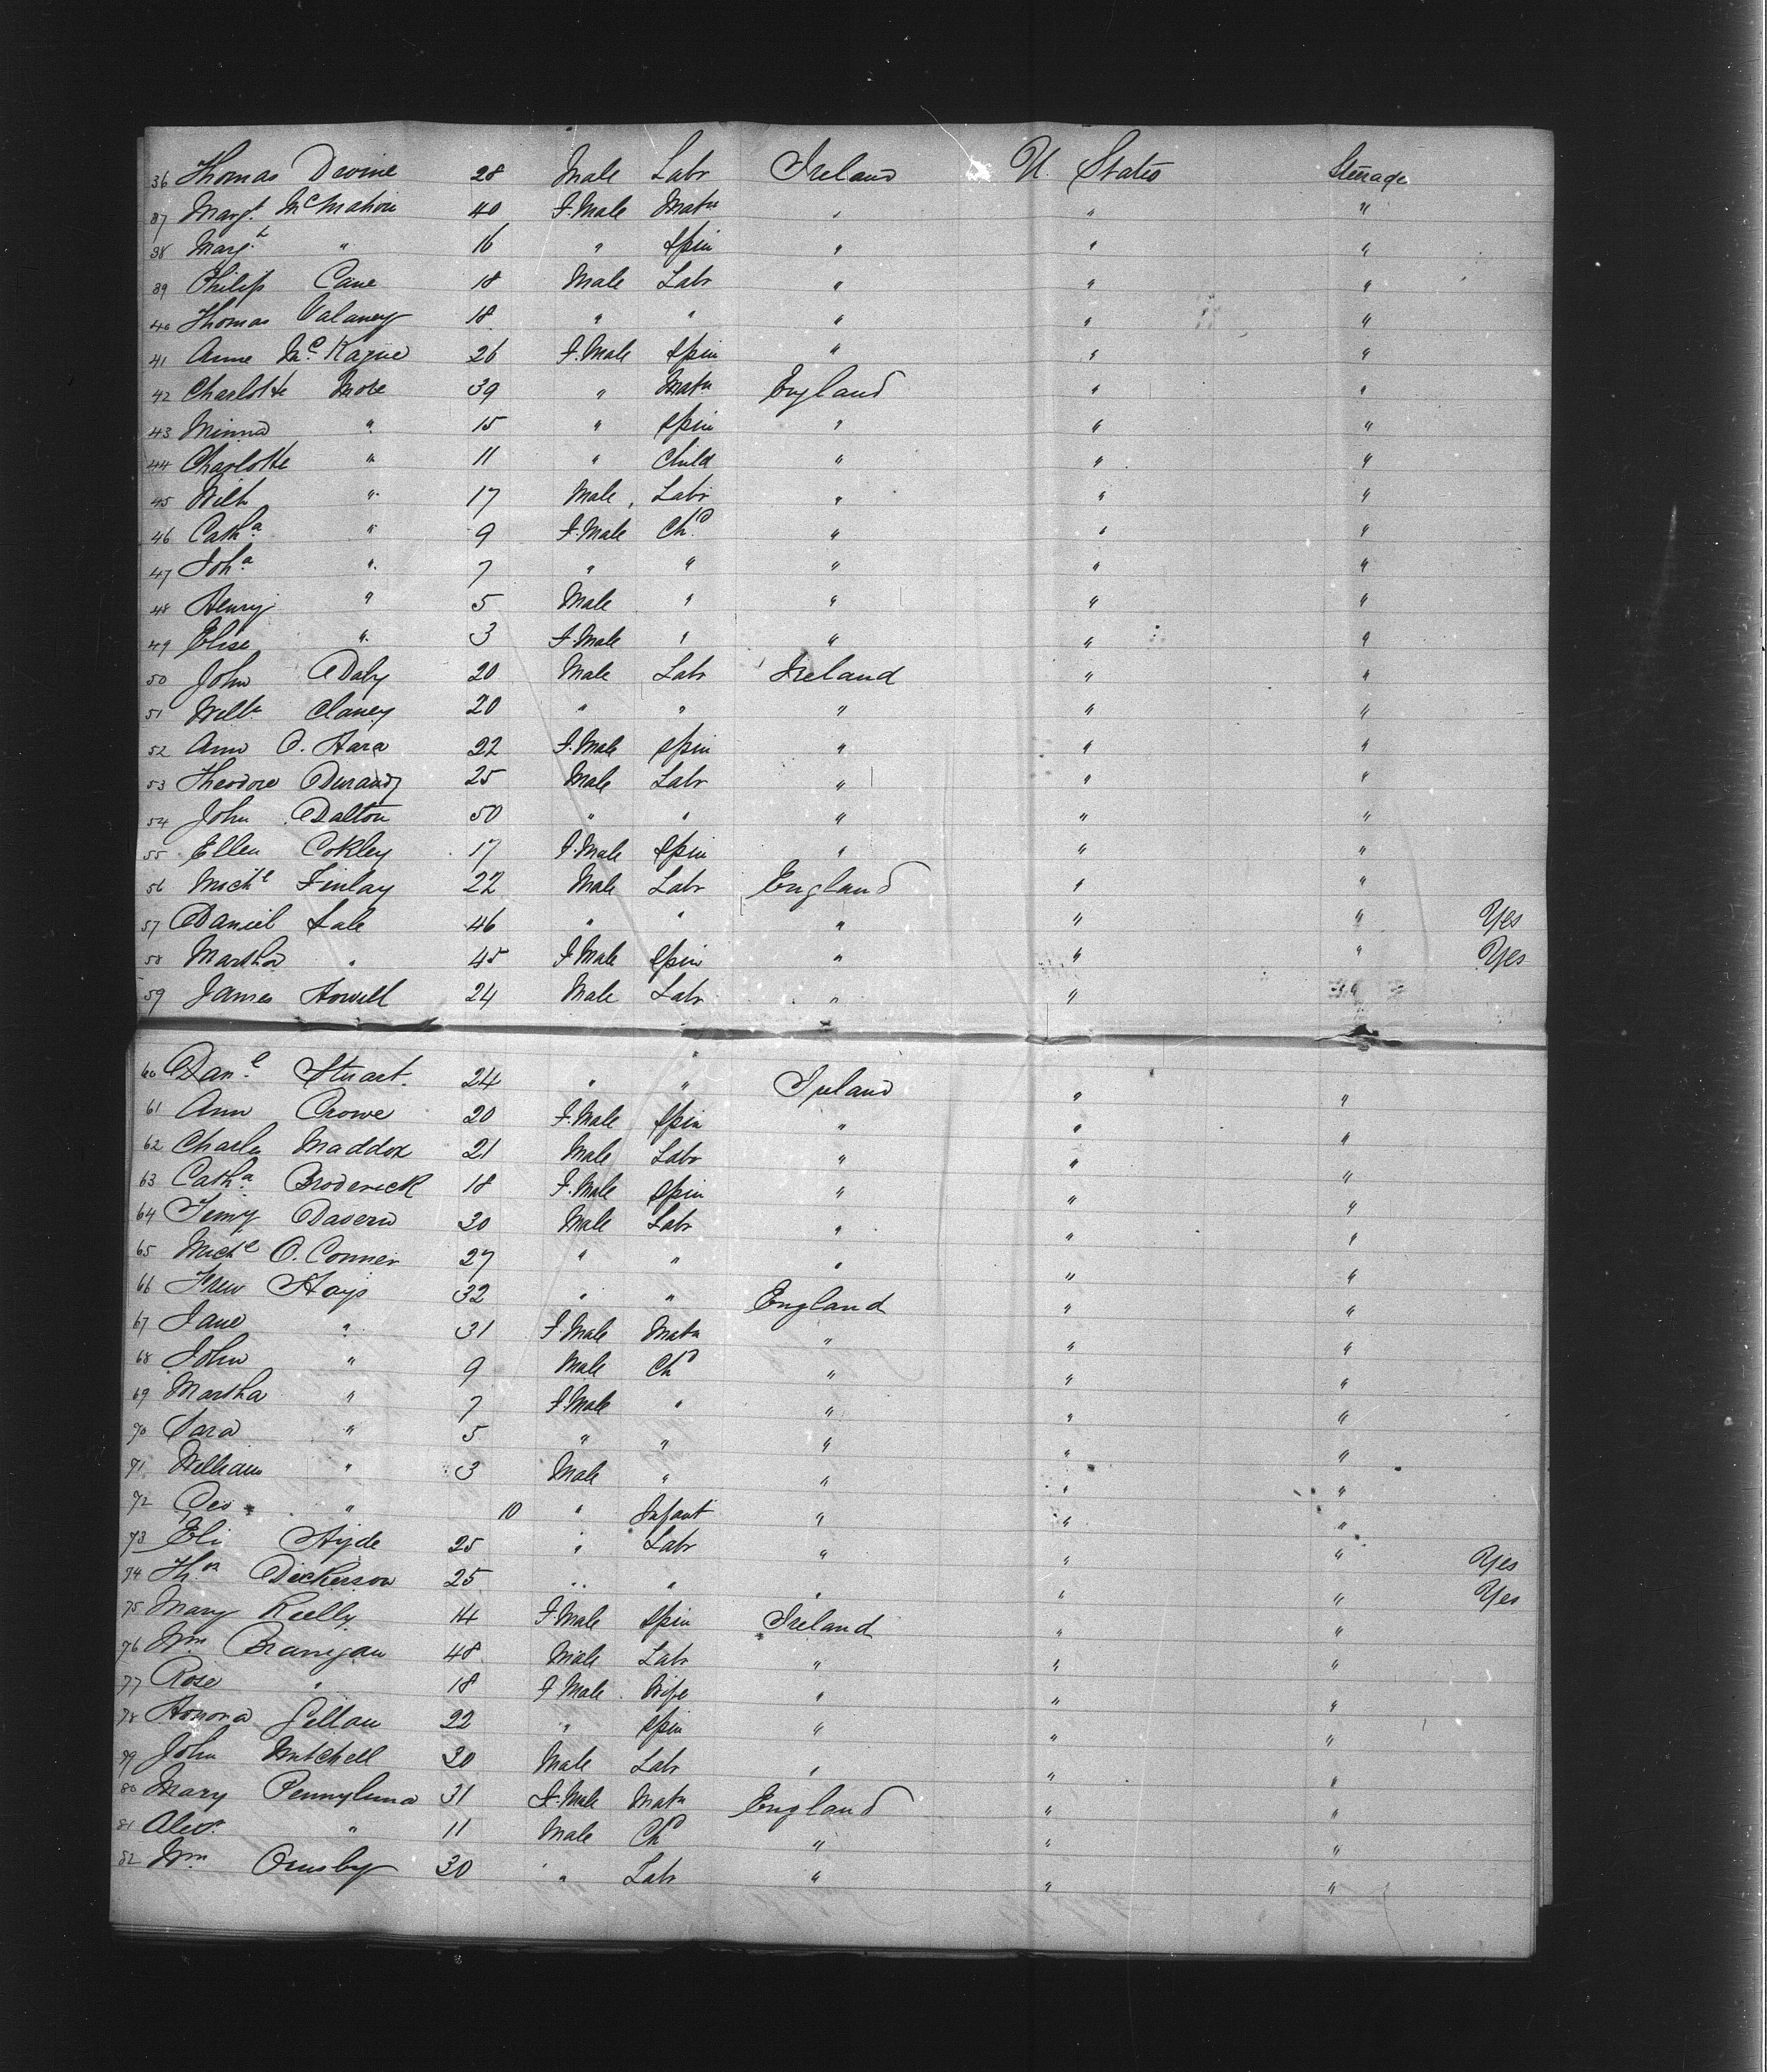 36 Thomas Devine 28 Male Labr Ireland U. States Steerage
37 Margt. McMahon 40 F.Male Matn " " "
38 Margt. " 16 " Spin " " "
39 Philip Cane 18 Male Labr " " "
40 Thomas Valaney 18 " " " " "
41 Anne McKague 26 F.Male Spin " " "
42 Charlotte More 39 " Matn England " "
43 Minna " 15 " Spin " " "
44 Charlotte " 11 " Child " " "
45 Willm " 17 Male Labr " " "
46 Catha " 9 F.Male Chd " " "
47 Joha " 7 " " " " "
48 Henry " 5 Male " " " "
49 Elise " 3 F.Male " " " "
50 John Daly 20 Male Labr Ireland " "
51 Willm Clancy 20 " " " " "
52 Ann O. Hara 22 F.Male Spin " " "
53 Theodore Durandy 25 Male Labr " " "
54 John Dalton 50 " " " " "
55 Ellen Cokley 17 F.Male Spin " " "
56 Michl Finlay 22 Male Labr England " "
57 Daniel Sale 46 " " " " " Yes
58 Martha " 45 F Male Spin " " " Yes
59 James Howell 24 Male Labr " " "
60 Danl Stuart. 24 " " Ireland " "
61 Ann Crowe 20 F.Male Spin " " "
62 Charles Maddox 21 Male Labr " " "
63 Catha. Broderick 18 F.Male Spin " " "
64 Timy Davern 30 Male Labr " " "
65 Michl O. Conner 27 " " " " "
66 Frew Hays 32 " " England " "
67 Jane " 31 F.Male Matn " " "
68 John " 9 Male Chd " " "
69 Martha " 7 F.Male " " " "
70 Sara " 5 " " " " "
71 William " 3 Male " " " "
72 Geo " 10 " Infant " " "
73 Eli Hyde 25 " Labr " " " Yes
74 Thos Dickerson 25 " " " " " Yes
75 Mary Reelly 14 F.Male Spin Ireland " "
76 Wm Branigan 48 Male Labr " " "
77 Rose " 18 F Male Wife " " "
78 Honora Gillan 22 " Spin " " "
79 John Mitchell 30 Male Labr " " "
80 Mary Pennyluna 31 F.Male Matn England " "
81 Alexr. " 11 Male Chd " " "
82 Wm Ormsby 30 " Labr " " "